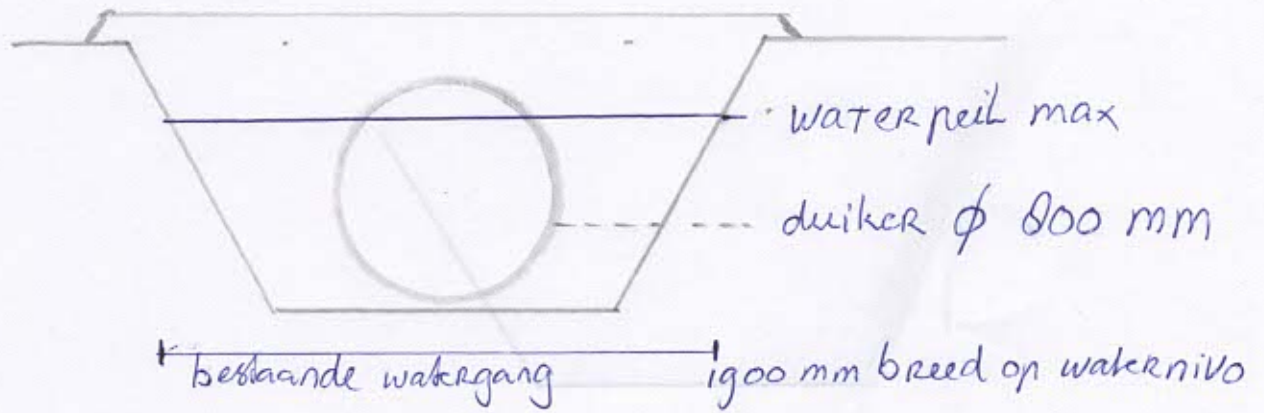 waterpeil max
duiker ϕ 800 mm
bestaande watergang 1900 mm breed op waternivo